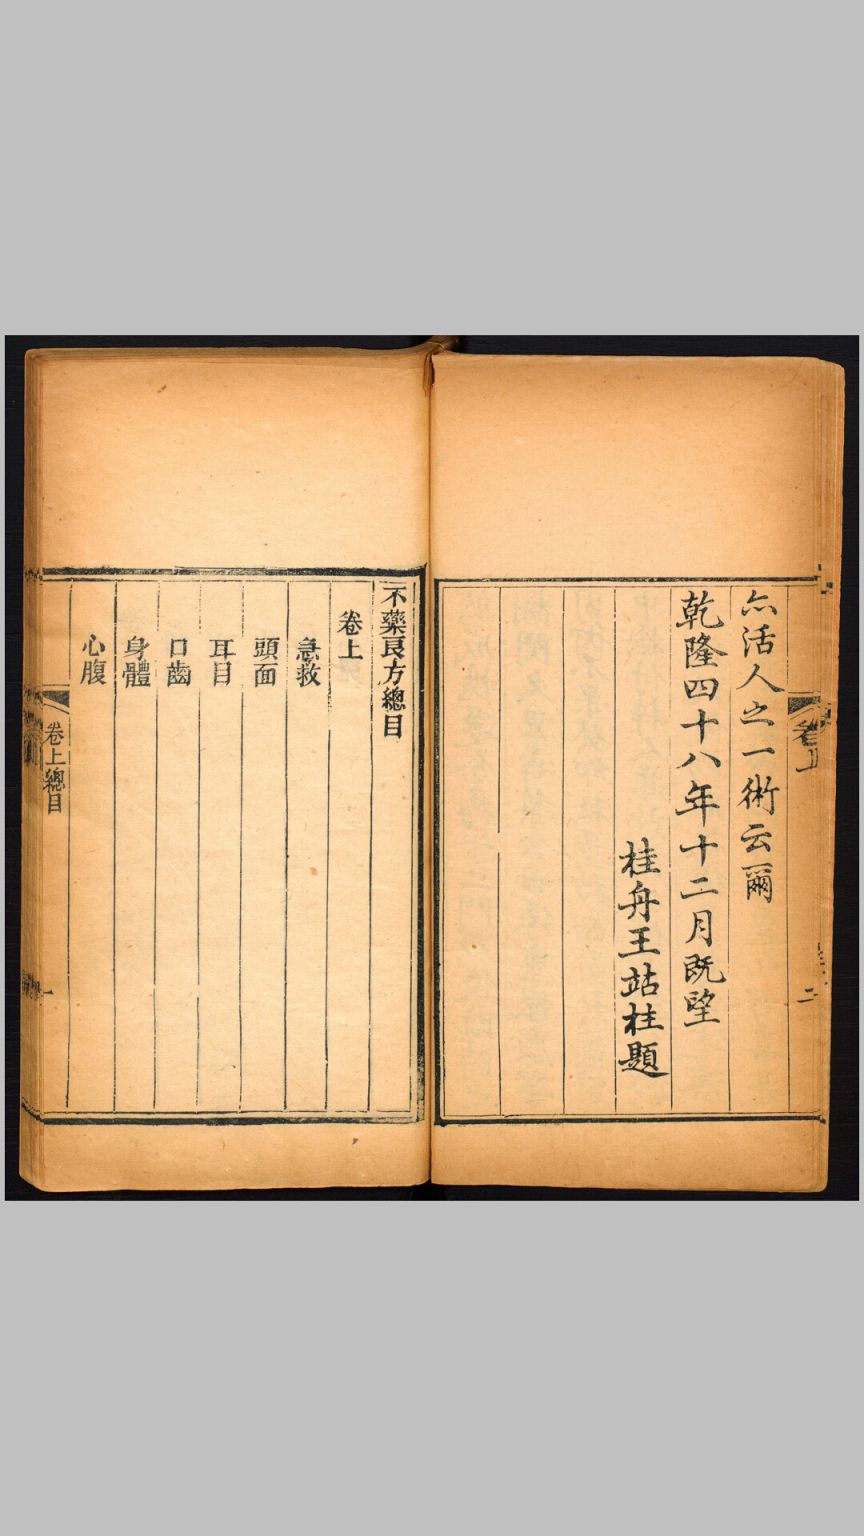 卷上
二
亦活人之一術云爾
乾隆四十八年十二月既望
桂舟王站柱題
不藥良方總目
卷上
急救
頭面
耳目
口齒
身體
心腹
卷上總目
一